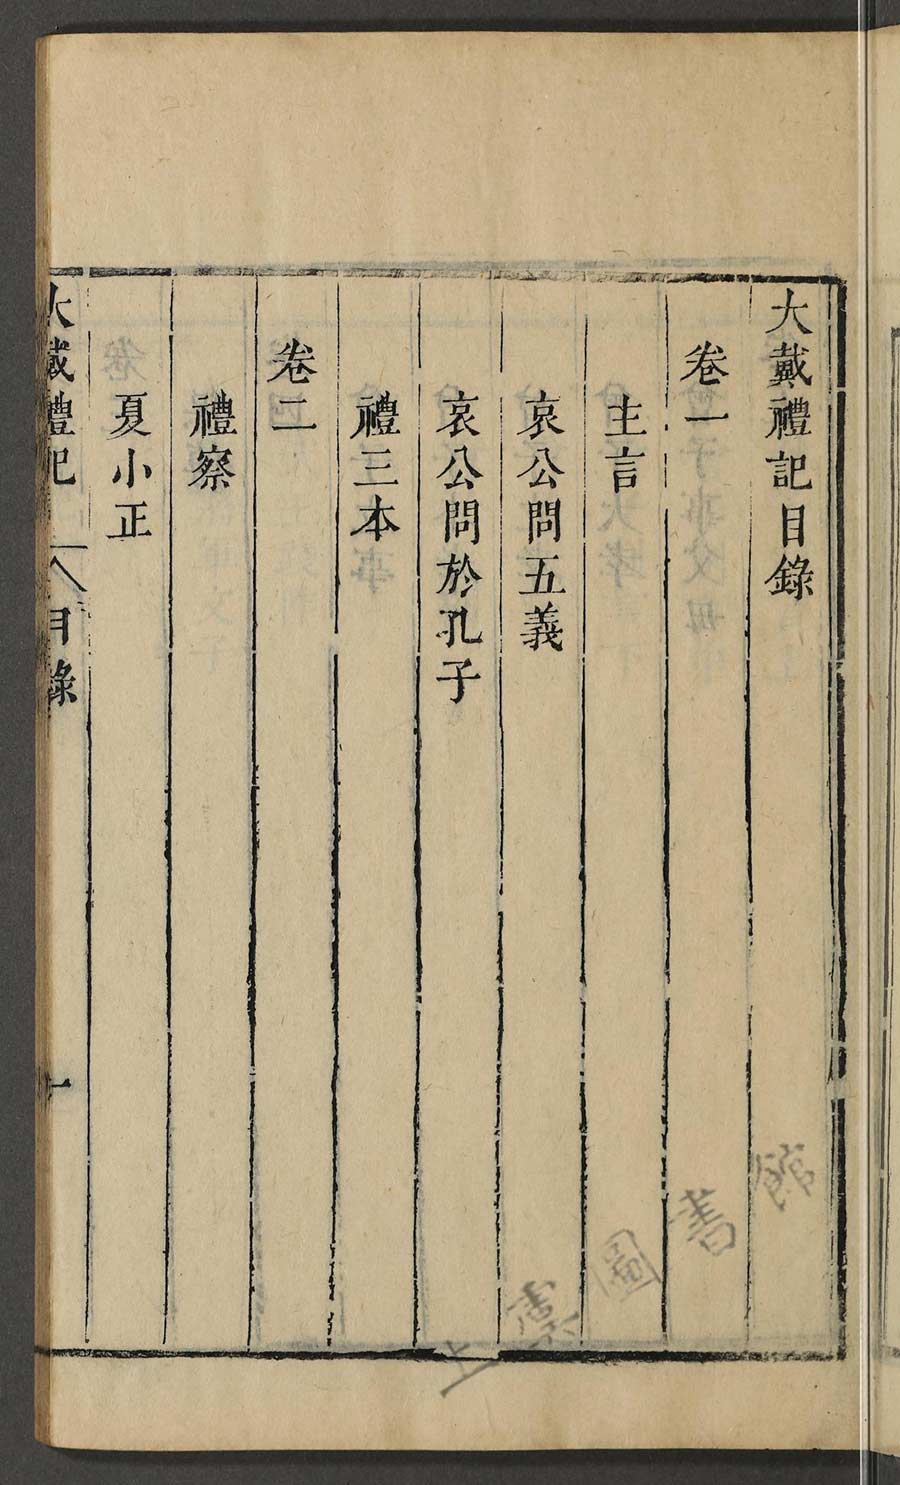 大戴禮記目錄
卷一
主言
哀公問五義
哀公問於孔子
禮三本
卷二
禮察
夏小正
大戴禮記 目錄 一
上虞圖書館